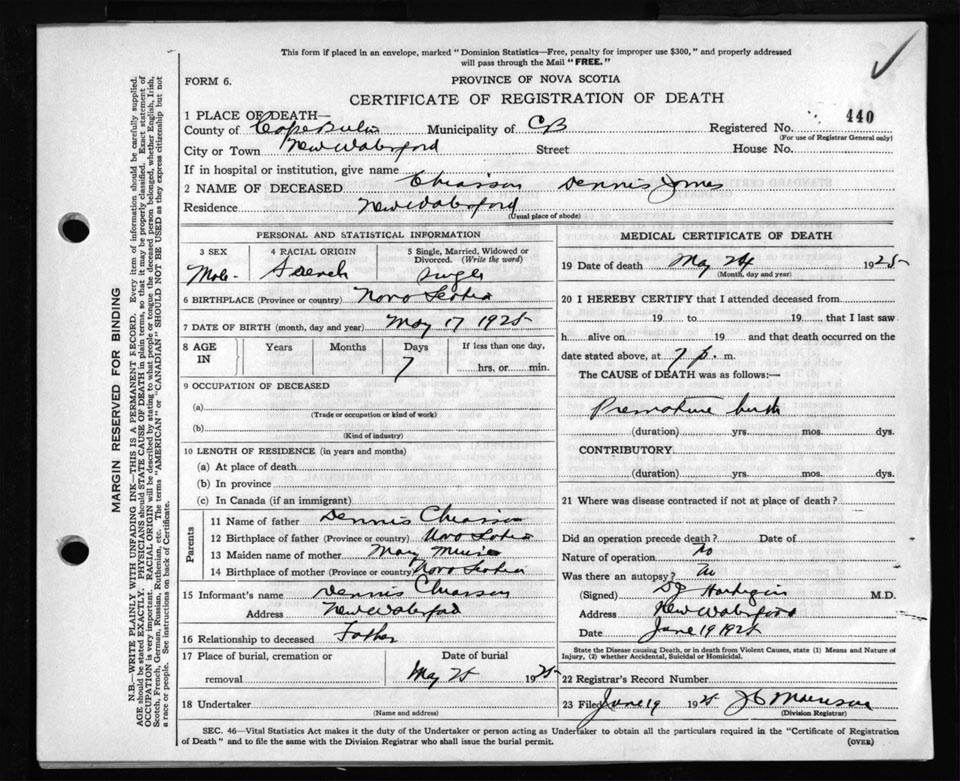 This form if placed in an envelope, marked "Dominion Statistics—Free, penalty for improper use $300," and properly addressed
will pass through the Mail "FREE."
FORM 6.
PROVINCE OF NOVA SCOTIA
CERTIFICATE OF REGISTRATION OF DEATH
1 PLACE OF DEATH—
County of Cape Breton Municipality of CB Registered No. 440
(For use of Registrar General only)
City or Town New Waterford Street House No.
If in hospital or institution, give name
2 NAME OF DECEASED Chiasson Dennis James
Residence New Waterford
(Usual place of abode)
PERSONAL AND STATISTICAL INFORMATION
3 SEX 4 RACIAL ORIGIN 5 Single, Married, Widowed or
Divorced. (Write the word)
Male French Single
6 BIRTHPLACE (Province or country) Nova Scotia
7 DATE OF BIRTH (month, day and year) May 17 1925
8 AGE IN Years Months Days If less than one day,
7 hrs. or min.
9 OCCUPATION OF DECEASED
(a)
(Trade or occupation or kind of work)
(b)
(Kind of industry)
10 LENGTH OF RESIDENCE (in years and months)
(a) At place of death
(b) In province
(c) In Canada (if an immigrant)
Parents
11 Name of father Dennis Chiasson
12 Birthplace of father (Province or country) Nova Scotia
13 Maiden name of mother Mary
14 Birthplace of mother (Province or country) Nova Scotia
15 Informant's name Dennis Chiasson
Address New Waterford
16 Relationship to deceased Father
17 Place of burial, cremation or Date of burial
removal May 25 1925
18 Undertaker
(Name and address)
MEDICAL CERTIFICATE OF DEATH
19 Date of death May 24 1925
(Month, day and year)
20 I HEREBY CERTIFY that I attended deceased from
19 to 19 that I last saw
h alive on 19 and that death occurred on the
date stated above, at 7 p. m.
The CAUSE of DEATH was as follows:—
Premature birth
(duration) yrs. mos. dys.
CONTRIBUTORY
(duration) yrs. mos. dys.
21 Where was disease contracted if not at place of death?
Did an operation precede death? Date of
Nature of operation no
Was there an autopsy? no
(Signed) M.D.
Address New Waterford
Date June 19 1925
State the Disease causing Death, or in death from Violent Causes, state (1) Means and Nature of
Injury, (2) whether Accidental, Suicidal or Homicidal.
22 Registrar's Record Number
23 Filed June 19 1925
(Division Registrar)
SEC. 46—Vital Statistics Act makes it the duty of the Undertaker or person acting as Undertaker to obtain all the particulars required in the "Certificate of Registration
of Death" and to file the same with the Division Registrar who shall issue the burial permit. (OVER)
MARGIN RESERVED FOR BINDING
N.B.—WRITE PLAINLY WITH UNFADING INK—THIS IS A PERMANENT RECORD. Every item of information should be carefully supplied.
AGE should be stated EXACTLY. PHYSICIANS should STATE CAUSE OF DEATH in plain terms, so that it may be properly classified. Exact statement of
OCCUPATION is very important. RACIAL ORIGIN will be described by stating to what people or tongue the deceased person belonged, whether English, Irish,
Scotch, French, German, Russian, Ruthenian, etc. The terms "AMERICAN" or "CANADIAN" SHOULD NOT BE USED as they express citizenship but not
a race or people. See instructions on back of Certificate.